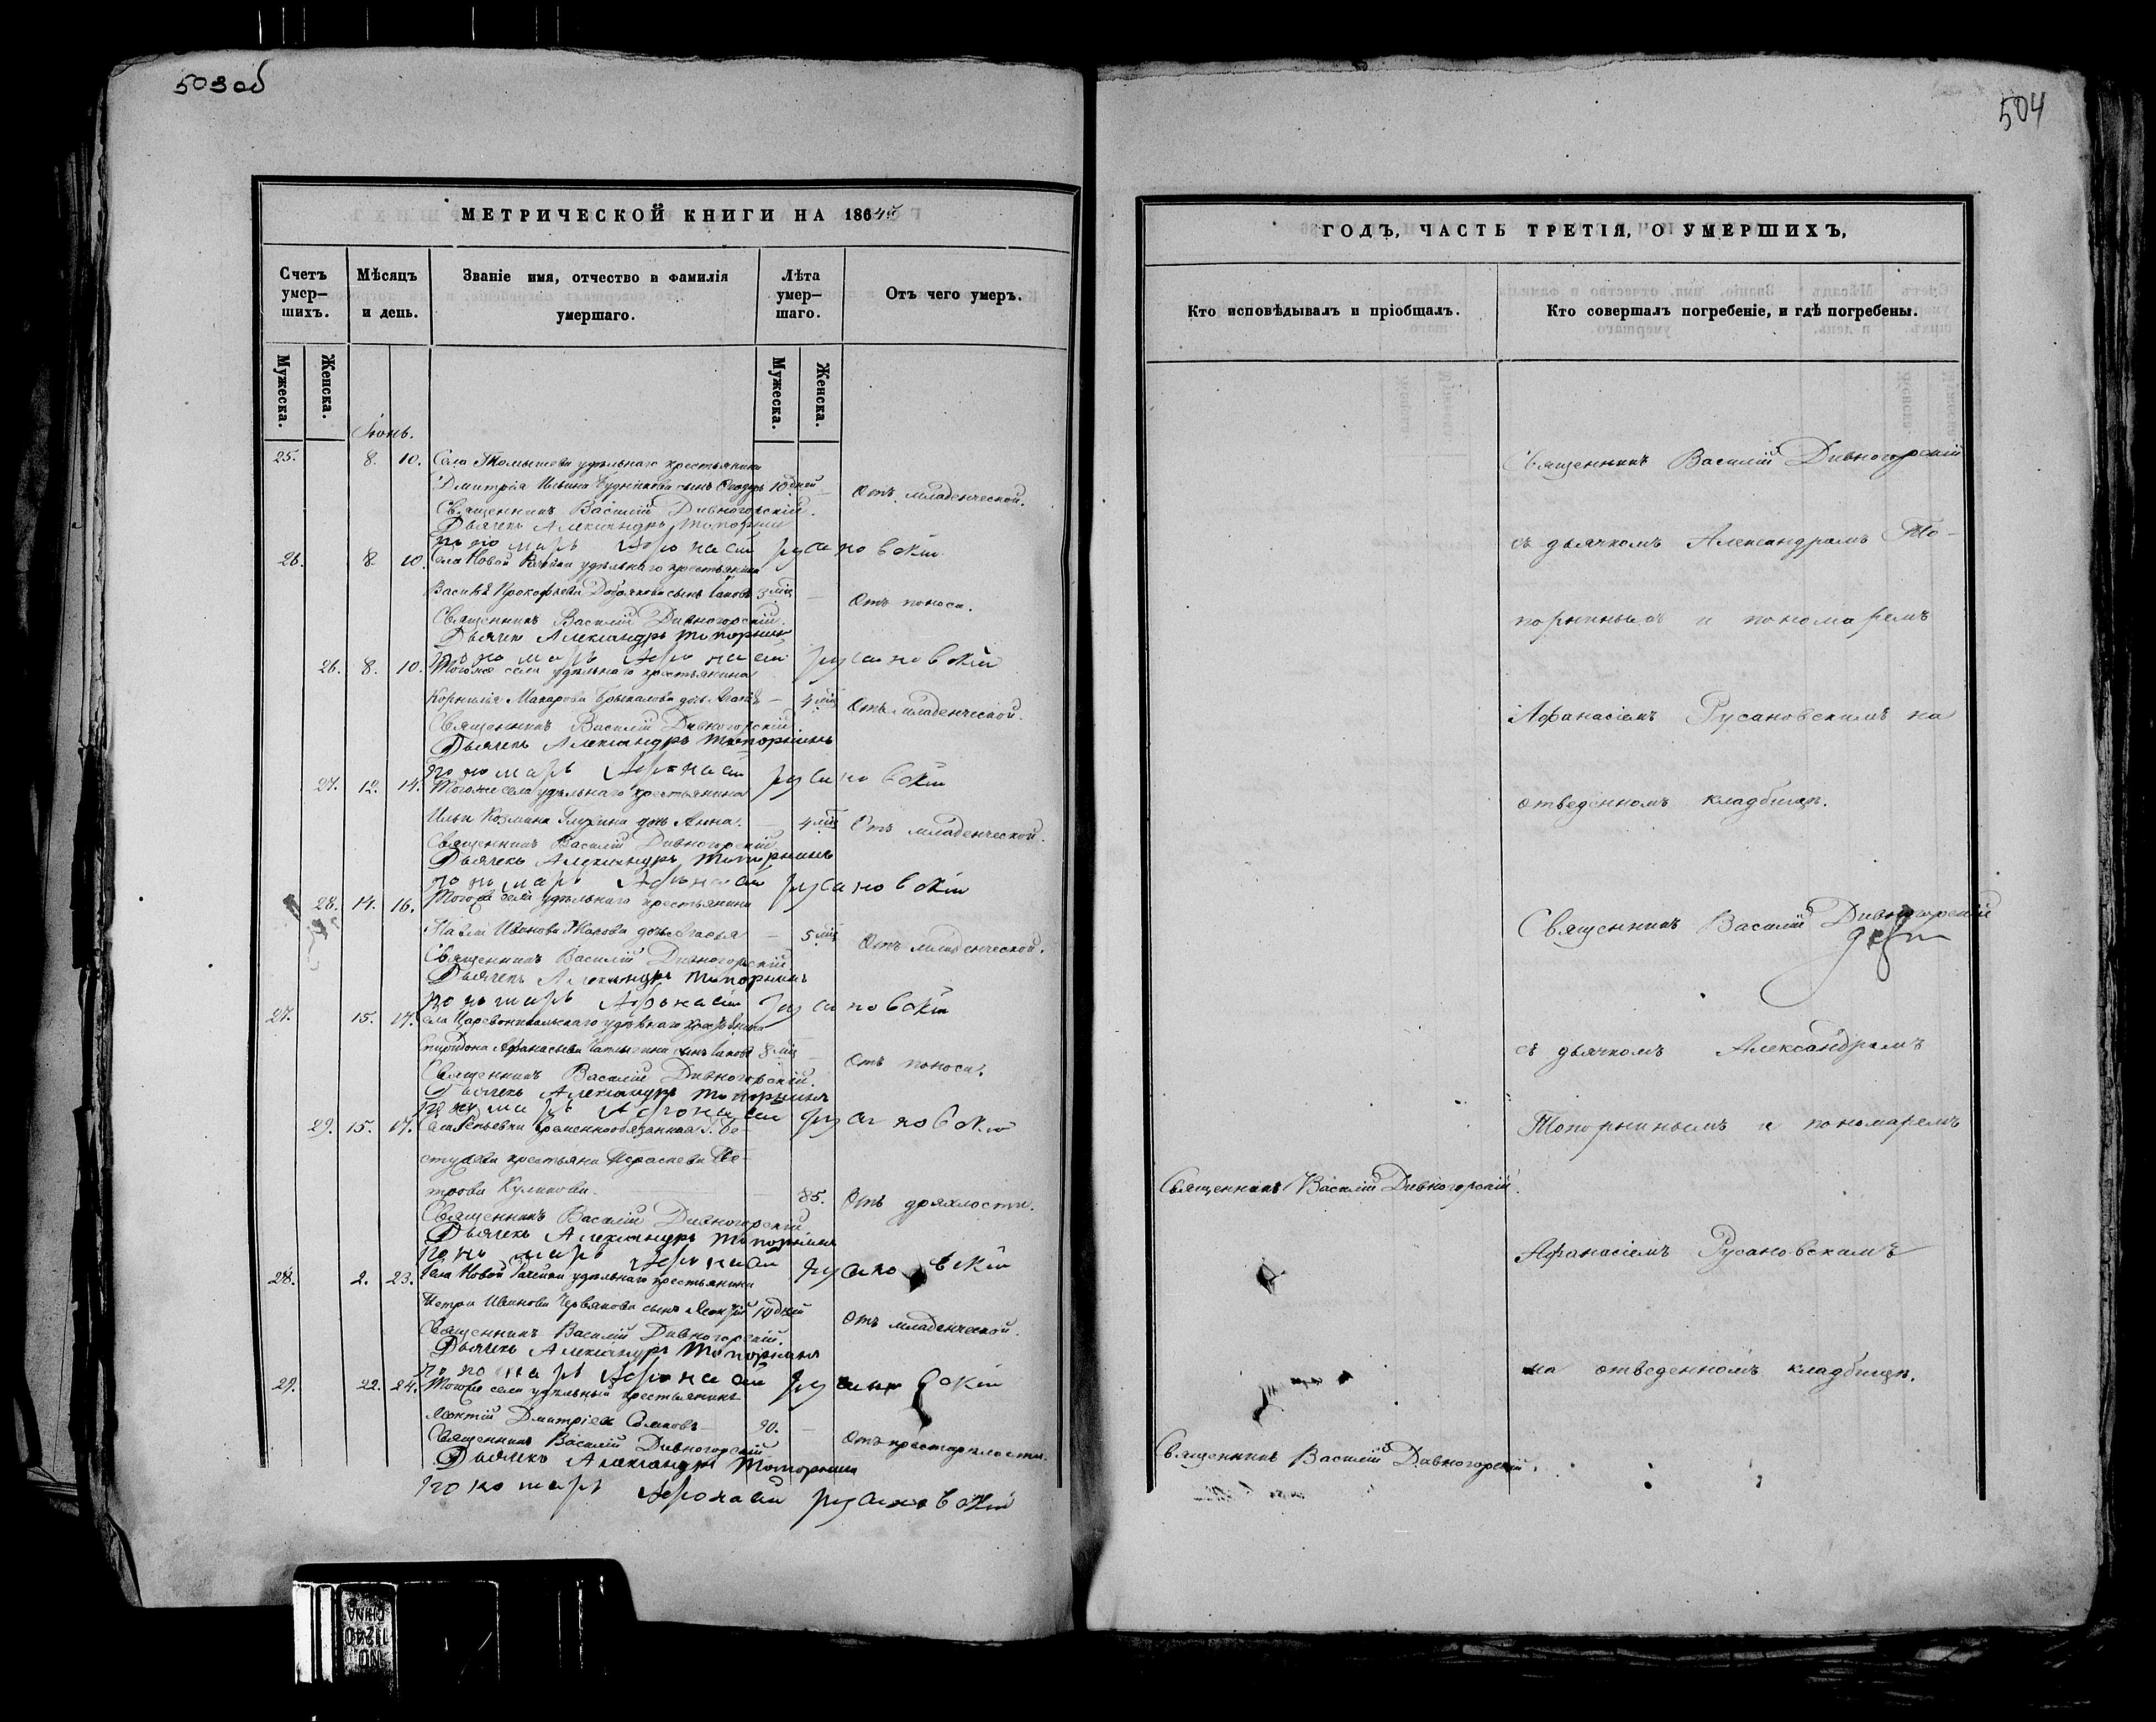 503 об
МЕТРИЧЕСКОЙ КНИГИ НА 186
Счетъ умер-шихъ.
Мѣсяцъ и день.
Званіе имя, отчество и фамилія умершаго.
Лѣта умер-шаго.
Отъ чего умеръ.
Мужеска.
Женска.
Мужеска.
Женска.
Іюнь.
25. 8. 10. Села удѣльнаго крестьянина
Дмитрія Ильина сынъ Ѳеодоръ 10 дней Отъ младенческой.
Священникъ Василій Дивногорскій.
Дьячекъ Александръ Топорнинъ
пономарь Афонасій русановскій
26. 8. 10. Села Новой Рачейки удѣльнаго крестьянина
Прокофьева сынъ Іаковъ 3 мѣс Отъ поноса.
Священникъ Василій Дивногорскій.
Дьячекъ Александръ Топорнинъ
пономарь Афонасій русановскій
26. 8. 10. Тогоже села удѣльнаго крестьянина
Корнилія Макарова дочь 4 мѣс Отъ младенческой.
Священникъ Василій Дивногорскій
Дьячекъ Александръ Топорнинъ
пономарь Афонасій русановскій
27. 12. 14. Тогоже села удѣльнаго крестьянина
Ильи Козмина дочь Анна. 4 мѣс Отъ младенческой.
Священникъ Василій Дивногорскій
Дьячекъ Александръ Топорнинъ
пономарь Афонасій русановскій
28. 14. 16. Тогоже села удѣльнаго крестьянина
Павла Иванова дочь 5 мѣс Отъ младенческой.
Священникъ Василій Дивногорскій
Дьячекъ Александръ Топорнинъ
пономарь Афонасій русановскій
27. 15. 17. Села Царевоникольскаго удѣльнаго крестьянина
Спиридона Афанасьева сынъ Іаковъ 8 мѣс Отъ поноса.
Священникъ Василій Дивногорскій.
Дьячекъ Александръ Топорнинъ
пономарь Афонасій русановскій
29. 15. 17. Села Репьевки временнообязанная Г. Бе-
стужева крестьянка Параскева Пе-
трова Куликова. 85. Отъ дряхлости.
Священникъ Василій Дивногорскій
Дьячекъ Александръ Топорнинъ
пономарь Афонасій русановскій
28. 2. 23. Села Новой Рачейки удѣльнаго крестьянина
Петра Иванова Червякова сынъ 10 дней Отъ младенческой.
Священникъ Василій Дивногорскій.
Дьячекъ Александръ Топорнинъ
пономарь Афонасій русановскій
29. 22. 24. Тогоже села удѣльный крестьянинъ
Леонтій Дмитріевъ 90. Отъ престарѣлости.
Священникъ Василій Дивногорскій
Дьячекъ Александръ Топорнинъ
пономарь Афонасій русановскій
504
ГОДЪ, ЧАСТЬ ТРЕТІЯ, О УМЕРШИХЪ,
Кто исповѣдывалъ и пріобщалъ.
Кто совершалъ погребеніе, и гдѣ погребены.
Священникъ Василій Дивногорскій
съ дьячкомъ Александромъ То-
порнинымъ и пономаремъ
Афанасіемъ Русановскимъ на
отведенномъ кладбищѣ.
Священникъ Василій Дивногорскій
съ дьячкомъ Александромъ
Топорнинымъ и пономаремъ
Священникъ Василій Дивногорскій.
Афанасіемъ Русановскимъ
на отведенномъ кладбищѣ.
Священникъ Василій Дивногорскій.
NO. 11240
CHINA